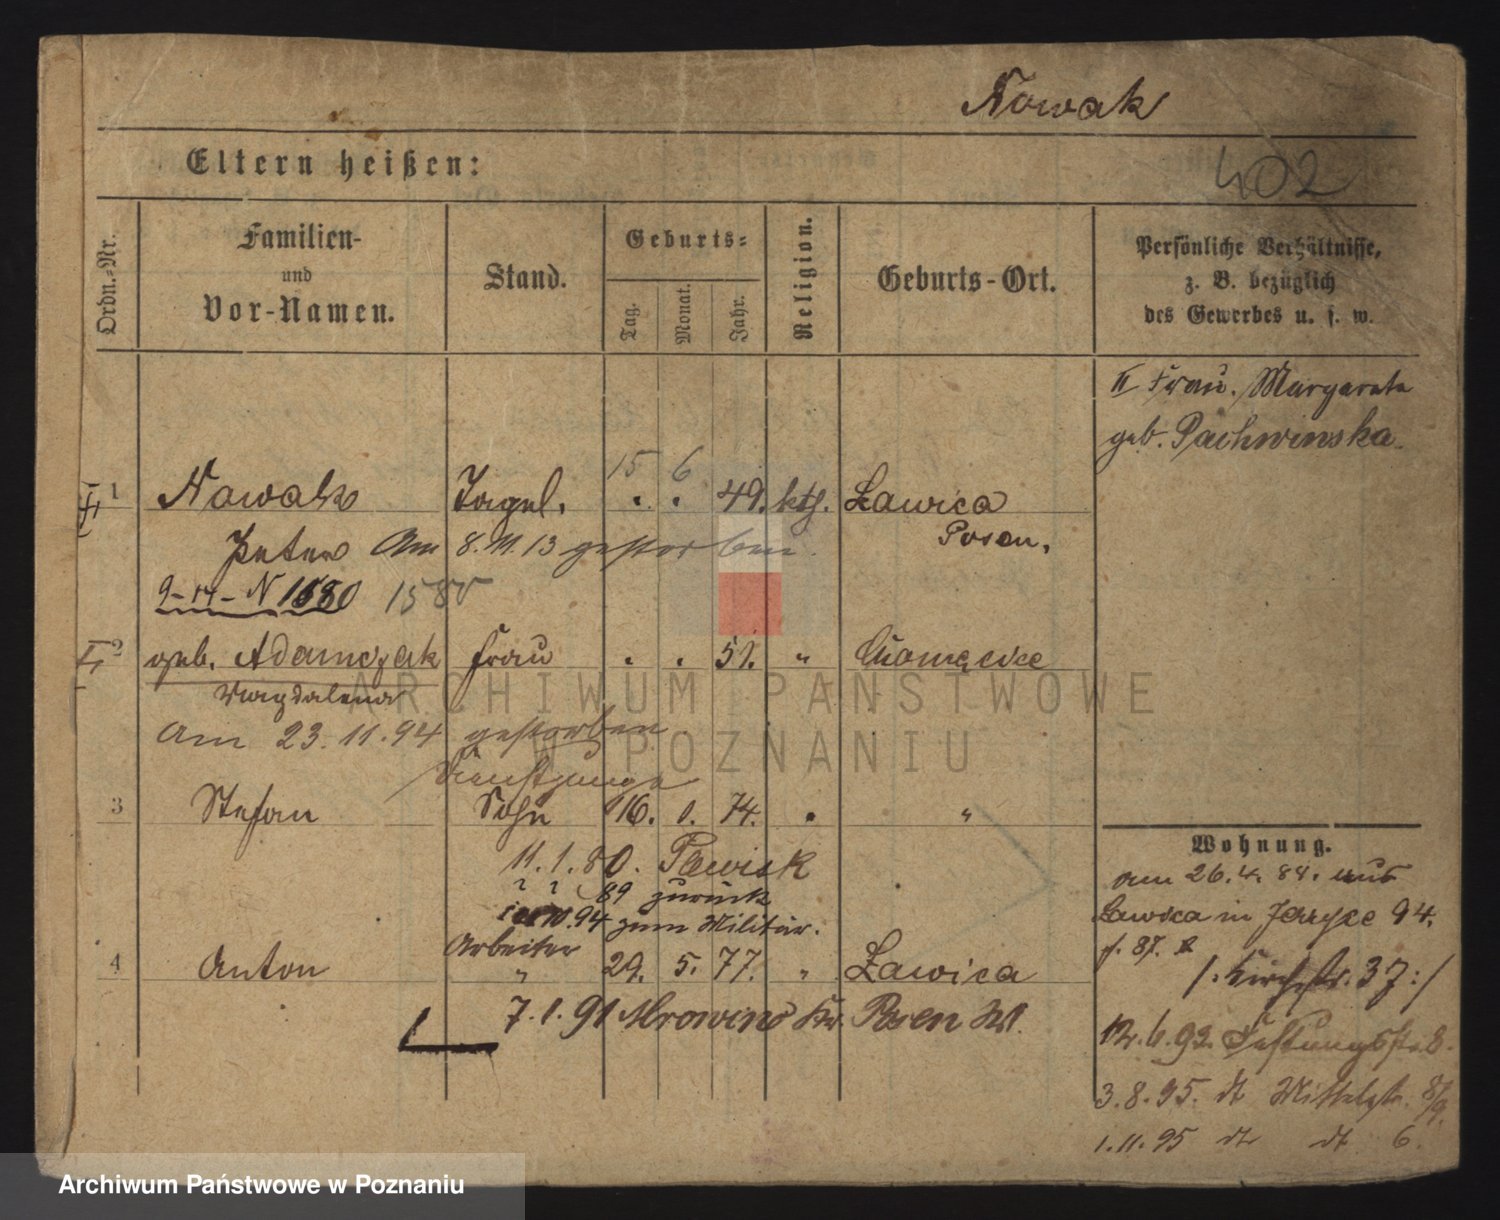 Nowak
Eltern heißen:
402
Ordn.-Nr.
Familien-
und
Vor-Namen.
Stand.
Geburts-
Tag.
Monat.
Jahr.
Religion.
Geburts-Ort.
Persönliche Verhältnisse,
z. B. bezüglich
des Gewerbes u. s. w.
II Frau. Margareta
geb. Pachwinska.
15 6
1 Nowak Tagel. 49. kth. Ławica
Posen.
Peter Am 8. 11. 13 gestorben.
1580
2 geb. Adamczak Frau 51. "
Magdalena
Am 23.11.94 gestorben
Dienstjunge
3 Stefan Sohn 16. 74. "
11.1.80.
89 zurück
94 zum Militär.
Arbeiter
4 Anton " 29. 5. 77. " Ławica
7.1.91 Mrowino Kr. Posen W.
Wohnung.
am 26.4.84. aus
Lawica in Jerzyce 94.
/: Kirchstr. 37 :/
12.6.92. Festungsstr. 8.
3.8.95. dt Mittelstr. 8/9.
1.11.95 dt dt 6.
ARCHIWUM PAŃSTWOWE
W POZNANIU
Archiwum Państwowe w Poznaniu